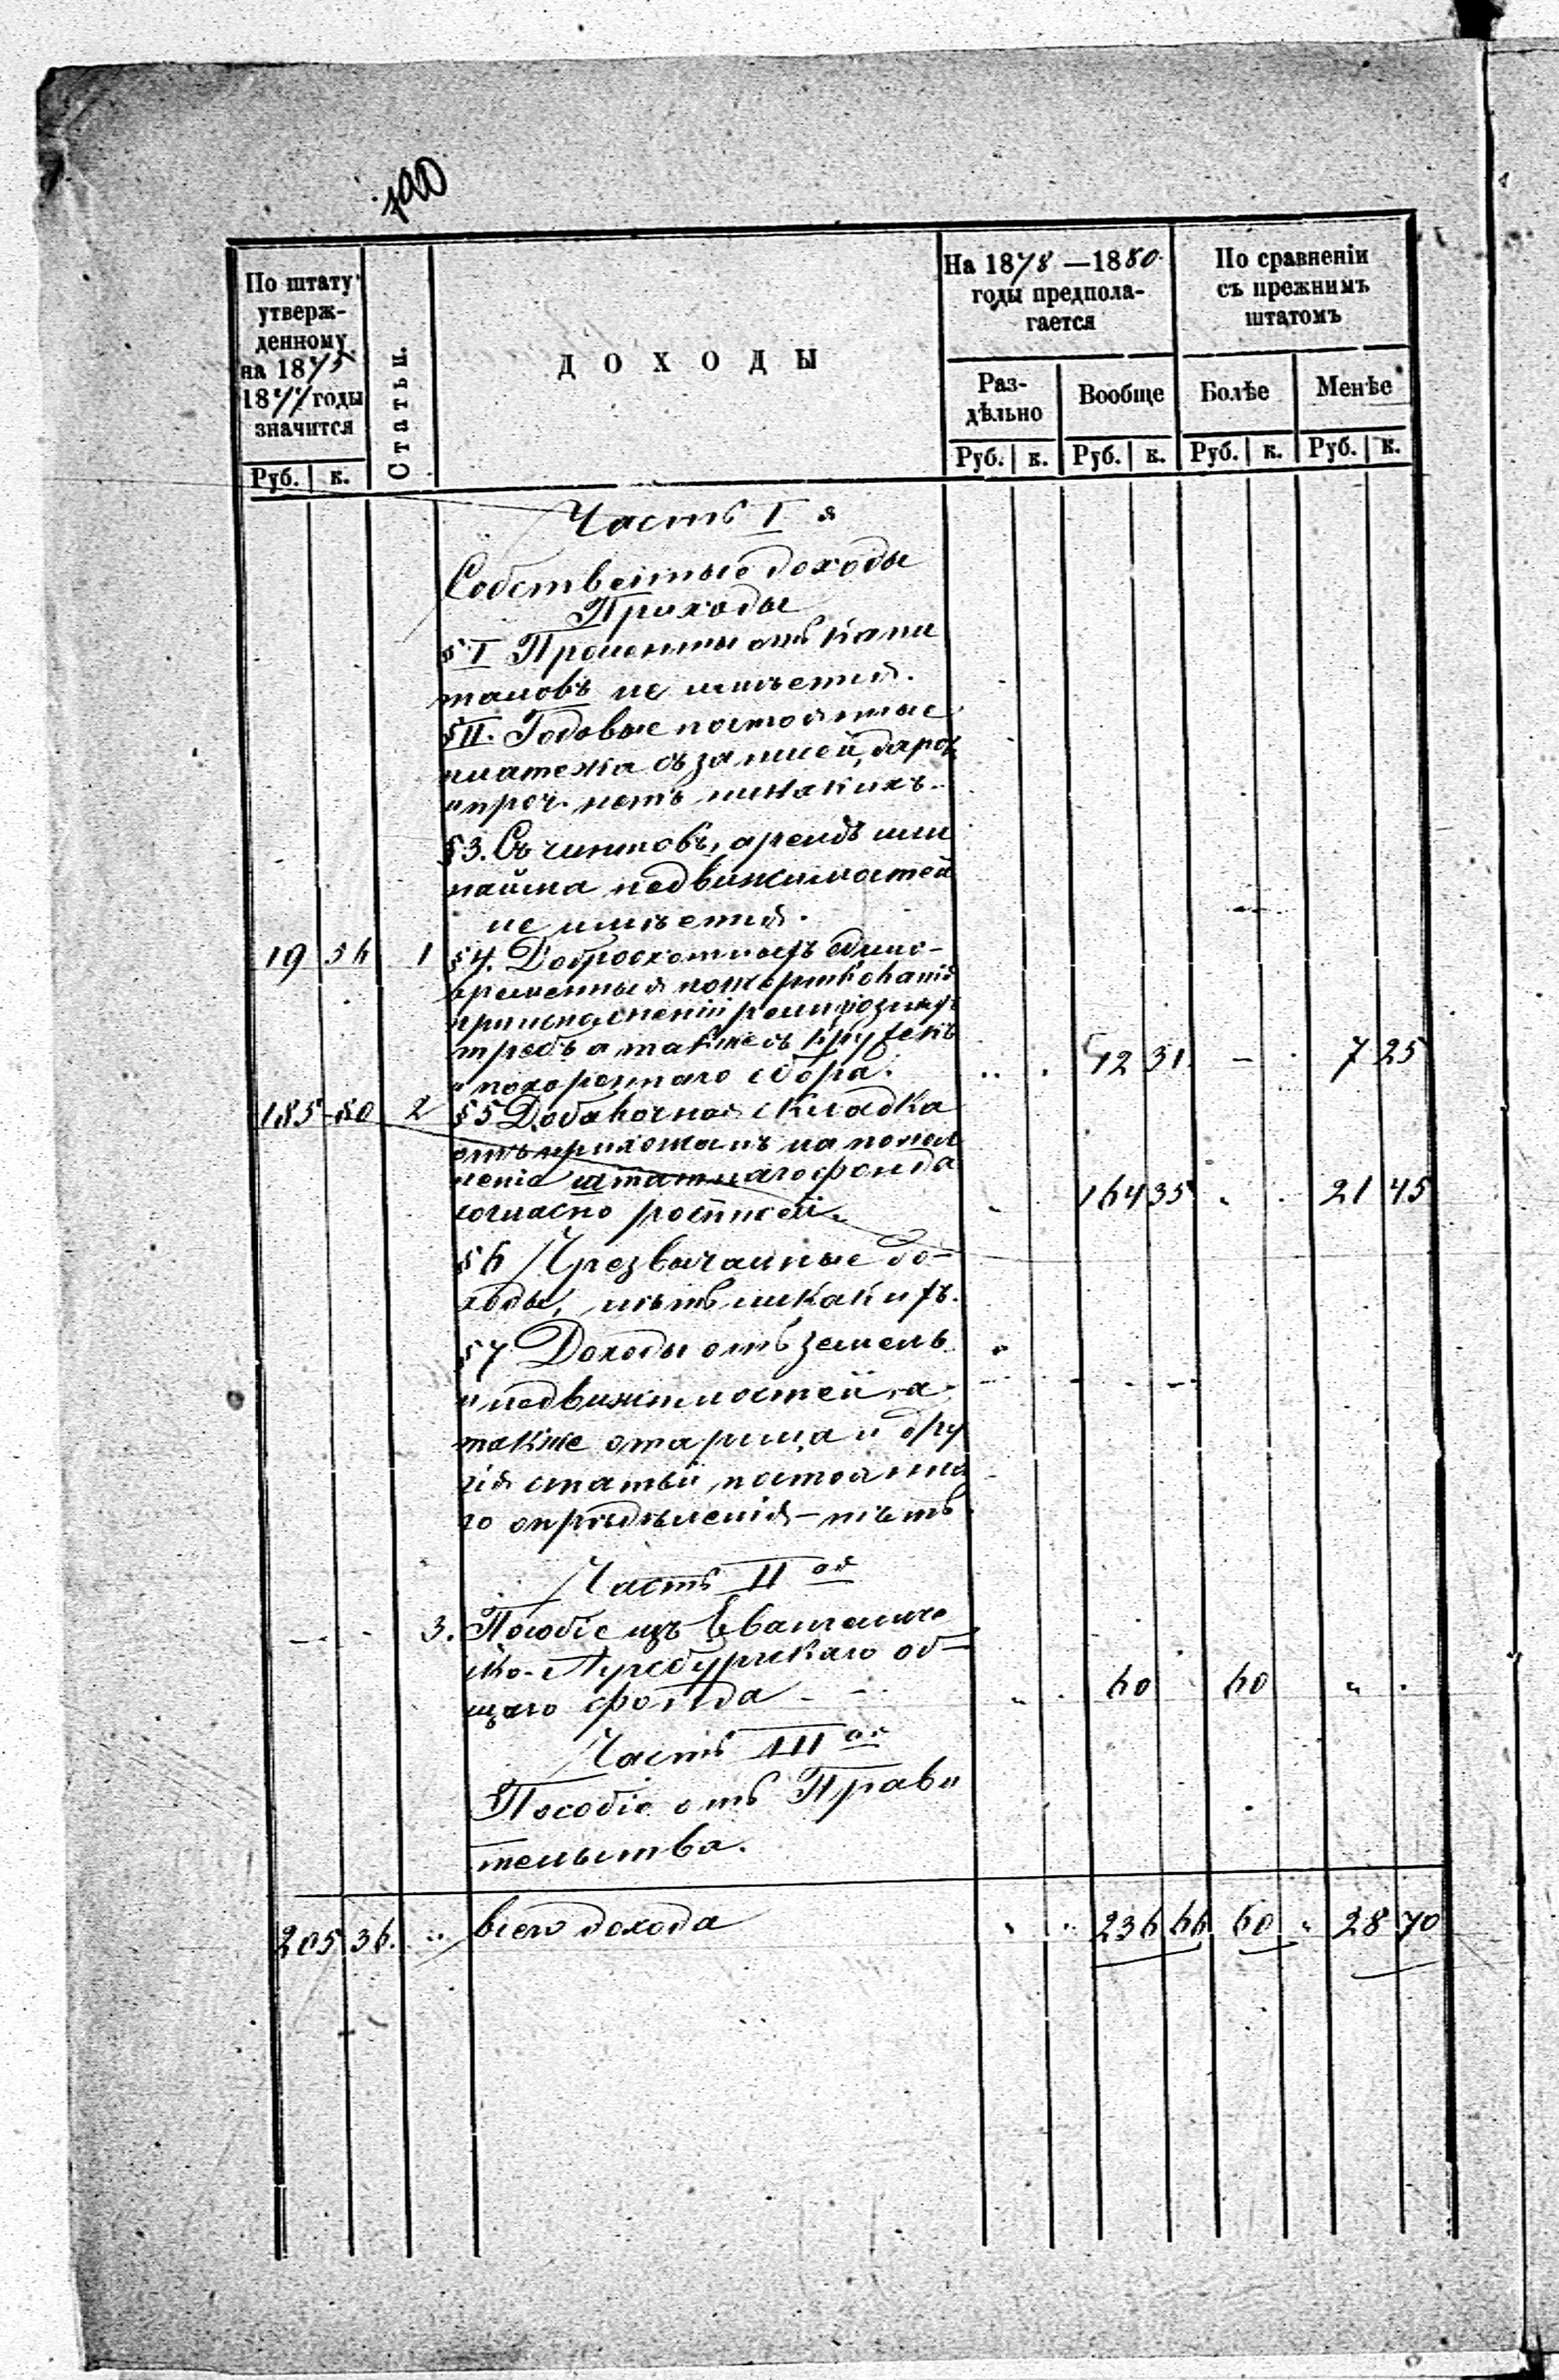 190
По штату
утверж-
денному
на 1875
1877 годы
значится
Руб. к.
Статьи.
ДОХОДЫ
На 1878 —1880
годы предпола-
гается
Раз-
дѣльно
Руб. к.
Вообще
Руб. к.
По сравненіи
съ прежнимъ
штатомъ
Болѣе
Руб. к.
Менѣе
Руб. к.
Часть I я
Собственные доходы
Приходы
§ I Проценты отъ капи
таловъ не имѣется.
§ II. Годовые постоянные
платежа съ записей, даров
и проч. нетъ никакихъ.
§ 3. Съ чиншовъ, арендъ или
найма недвижимостей
не имѣется.
19 56 1 § 4. Доброохотныхъ едино-
временныя пожертвованія
при исполненіи религіозныхъ
требъ а также съ кружекъ
и похороннаго сбора. 12 31 - 7 25
185 80 2 § 5 Добавочная складка
отъ прихожанъ на попол
ненія штатнаго фонда
согласно росписей. 164 35 21 45
§ 6 Чрезвычайные до-
ходы, нѣтъ никакихъ.
§ 7 Доходы отъ земель
и недвижимостей, а
также и дру
гія статьи постоянна
го опредѣленія — нѣтъ
Часть II ая
3. Пособіе изъ Евангеличе
ско-Аугсбургскаго об-
щаго фонда 60 60
Часть III ая
Пособіе отъ Прави
тельства.
205 36. всего дохода 236 66 60 28 70